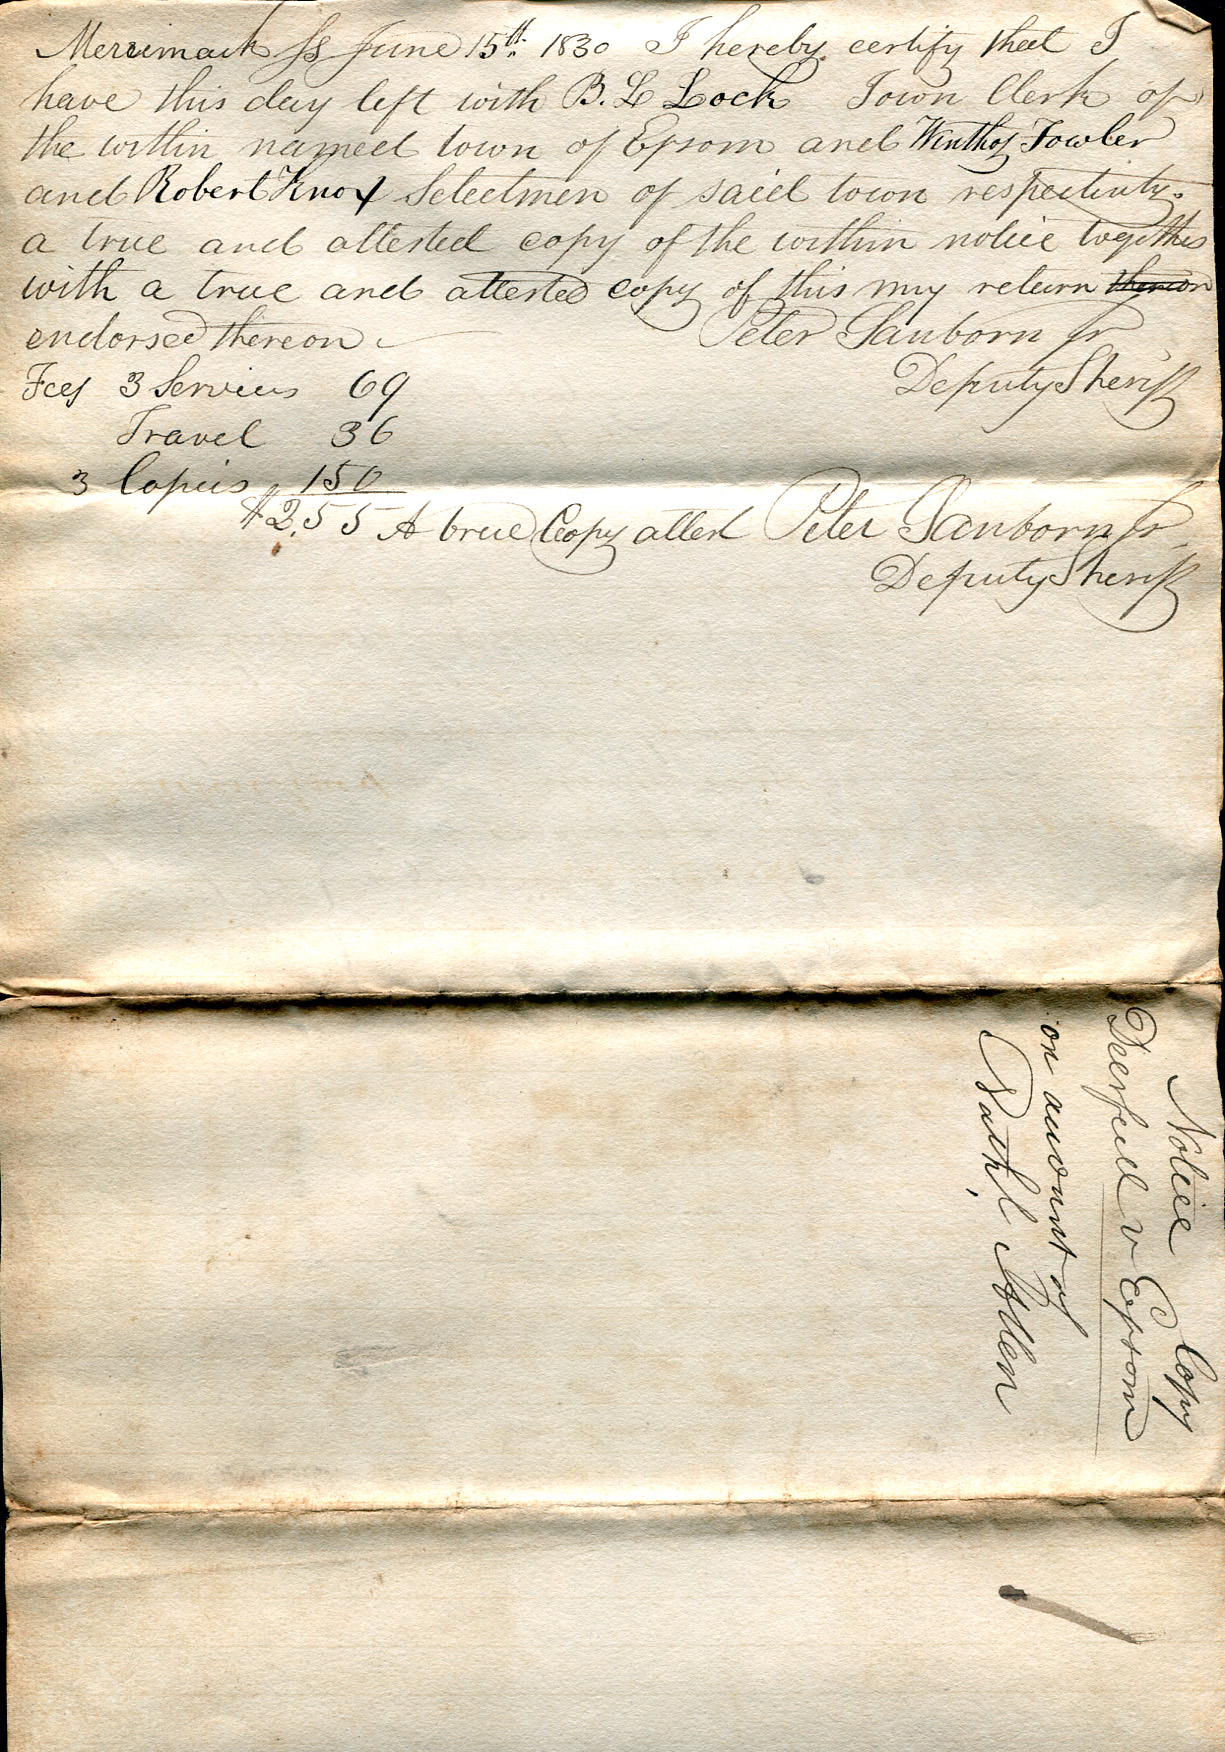 Merrimack ss June 15th 1830 I hereby certify that I
have this day left with B. L Lock Town Clerk of
the within named town of Epsom and Winthop Fowler
and Robert Knox Selectmen of said town respectively
a true and attested copy of the within notice together
with a true and attested copy of this my return thereon
endorsed thereon
Peter Sanborn Jr
Deputy Sheriff
Fees 3 Services 69
Travel 36
3 Copies 150
$2.55 A true Copy attest Peter Sanborn Jr.
Deputy Sheriff
Notice Copy
Deerfield v Epsom
on account of
Nathl, Allen